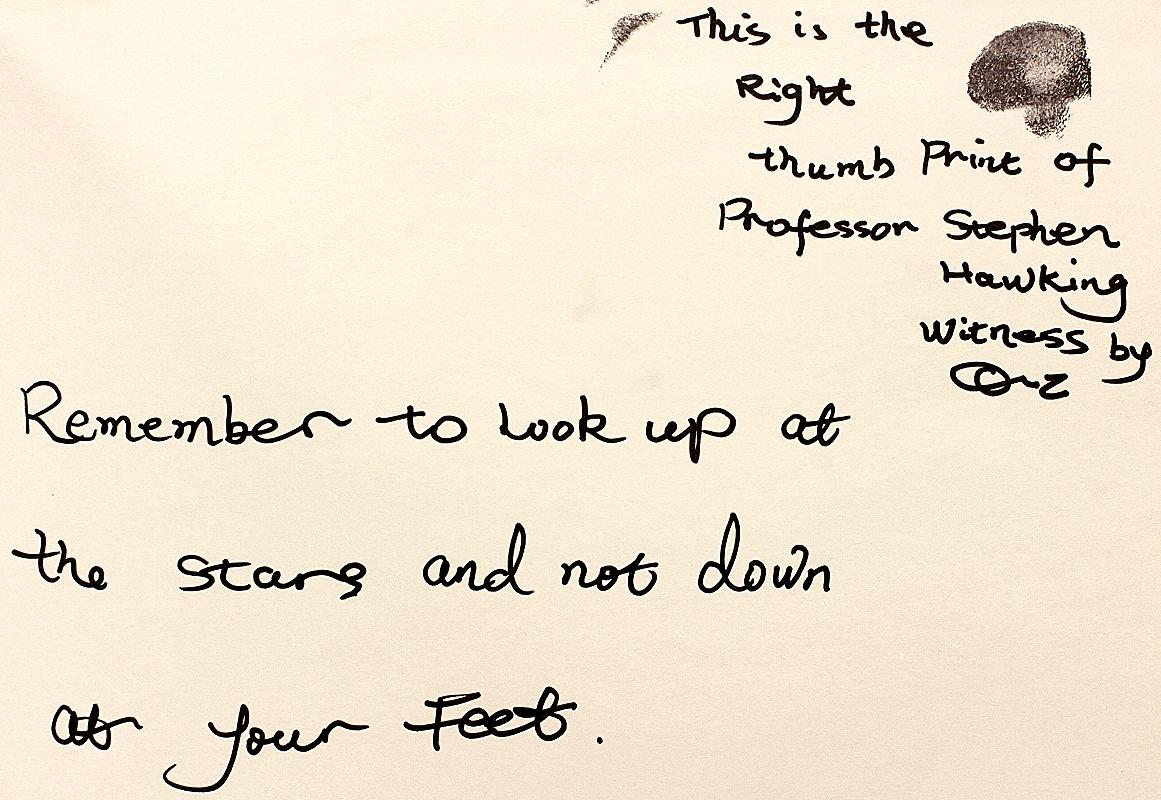 This is the
Right
thumb Print of
Professor Stephen
Hawking
Witness by
Remember to look up at
the stars and not down
at your Feet.